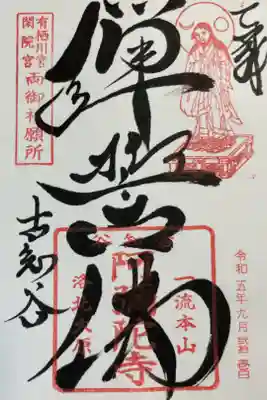 奉拝
令和五年九月
彈誓佛
有栖川宮
閑院宮
両御祈願所
古知谷
古知谷
一流本山
阿弥陀寺
洛北大原